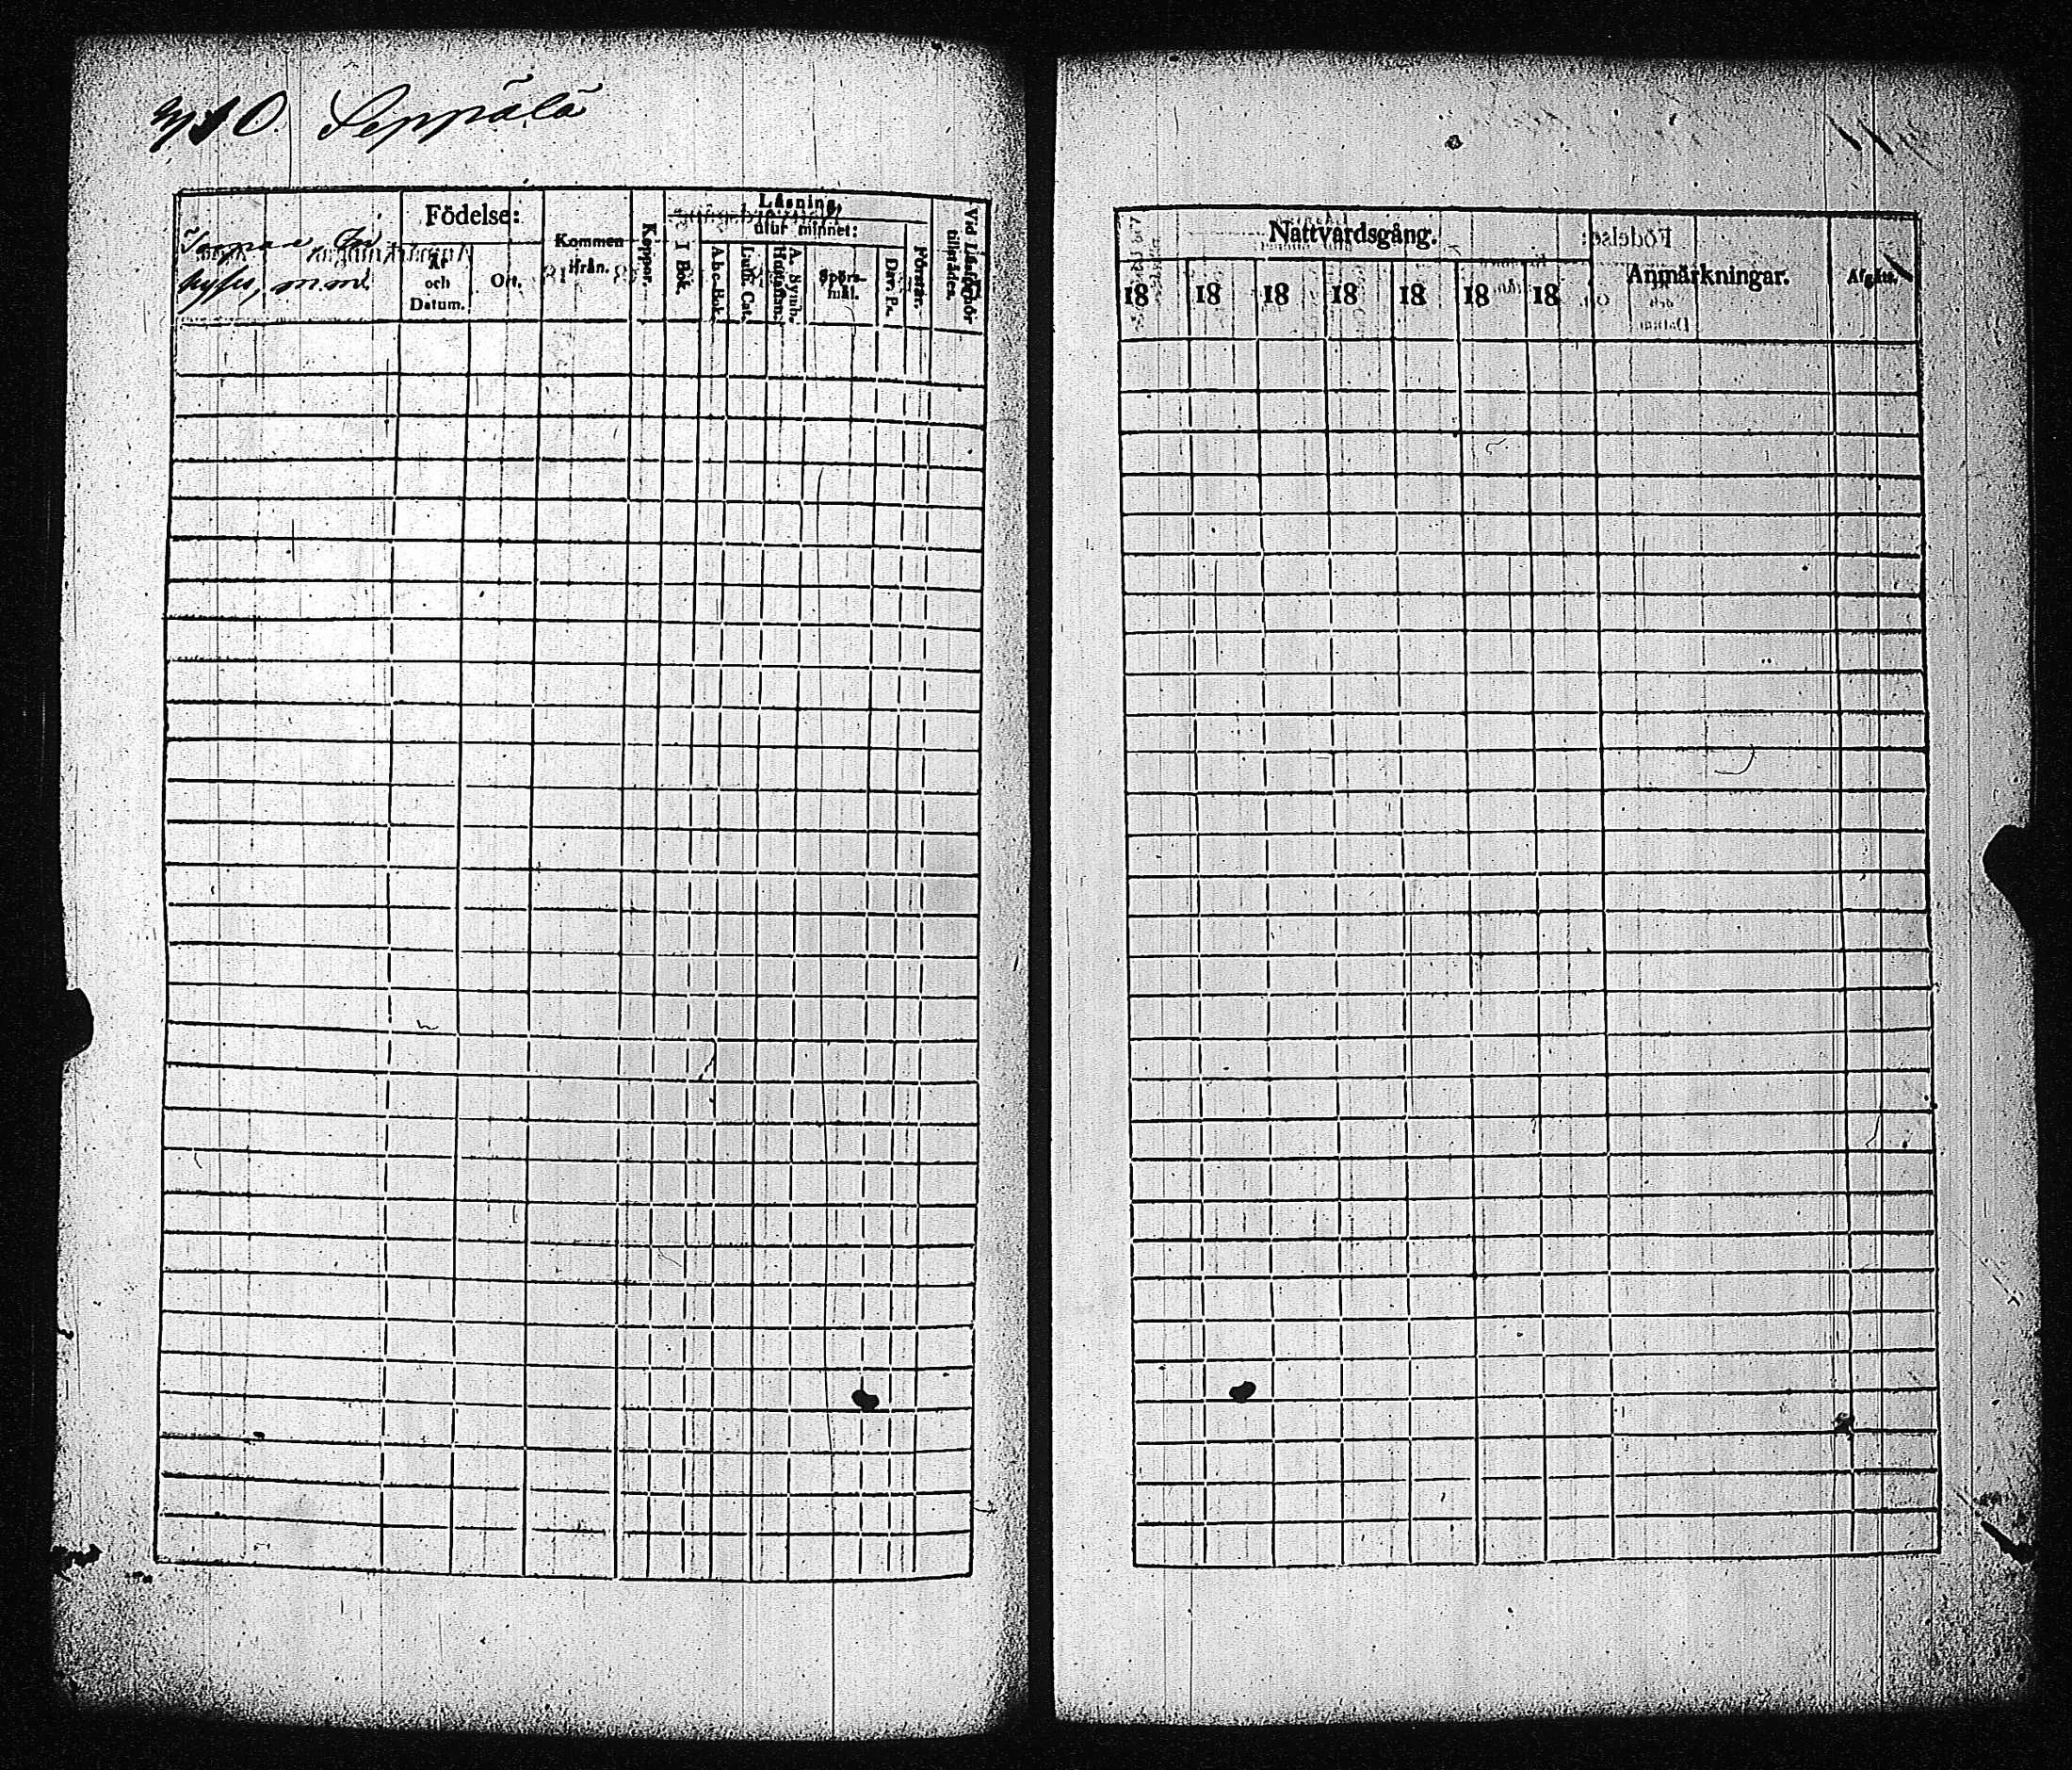 10. Seppälä
Födelse:
År och Datum.
Ort.
Kommen ifrån.
Koppor.
Läsning,
I Bok.
utur minnet:
Abc-Bok.
Luth. Cat.
A. Symb. Hustaflan.
Spörs- mål.
Dav. Ps.
Förstår.
Vid Läsförhör tillstädes.
Nattvardsgång.
18 18 18 18 18 18 18
Anmärkningar.
Afgått.